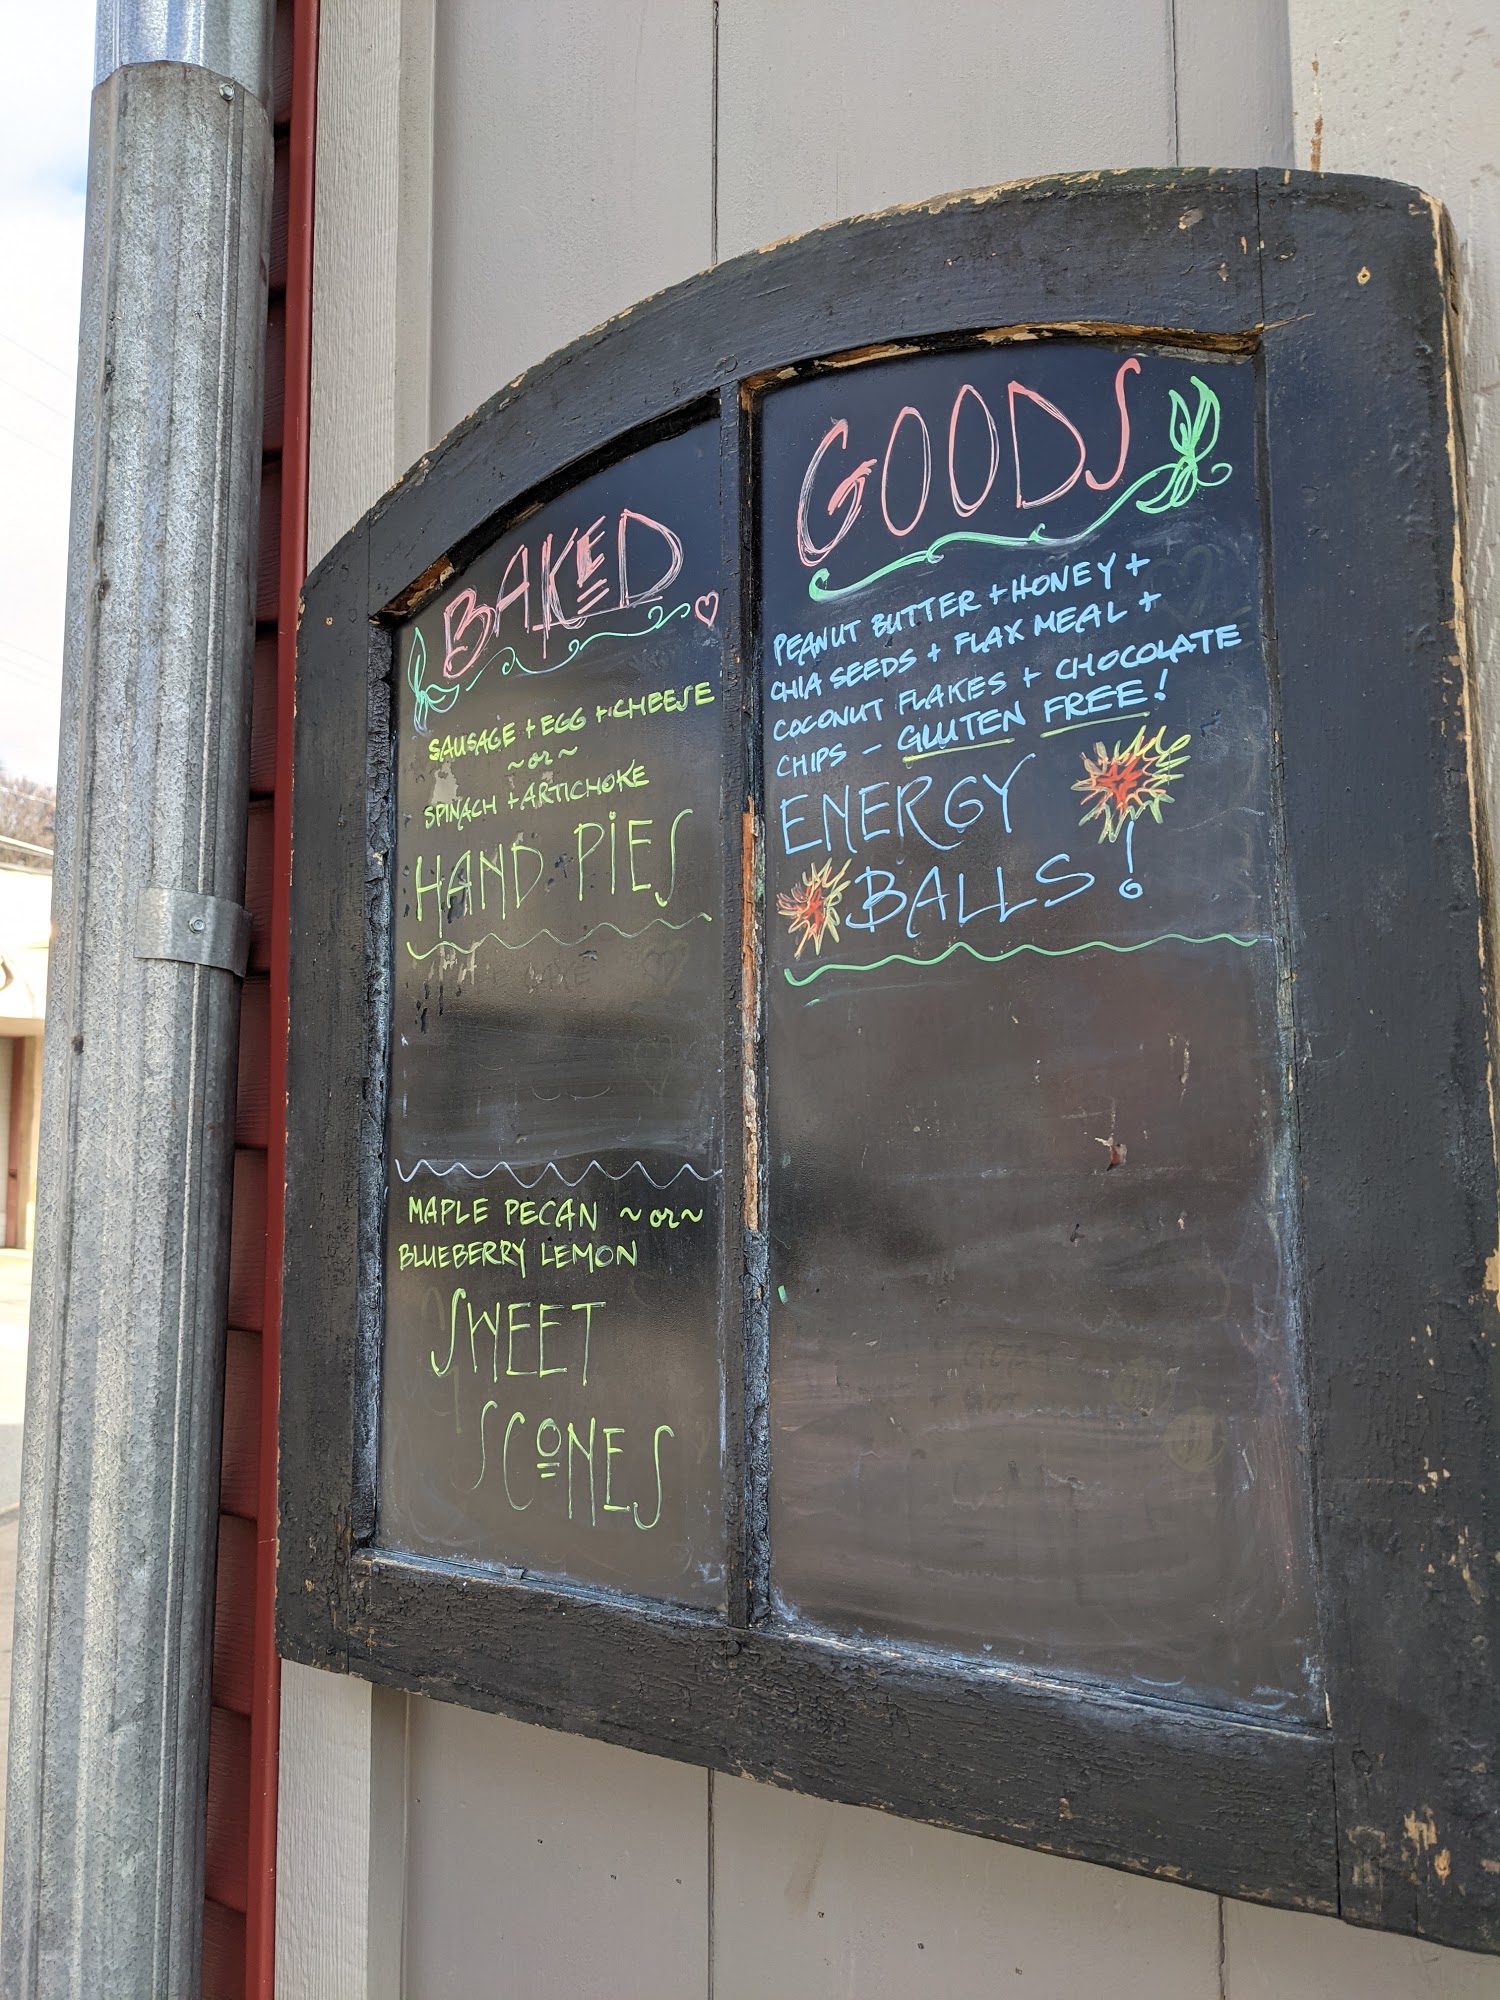 BAKED
SAUSAGE + EGG + CHEESE
~ or ~
SPINACH + ARTICHOKE
HAND PIES
MAPLE PECAN ~ or ~
BLUEBERRY LEMON
SWEET
SCONES
GOODS
PEANUT BUTTER + HONEY +
CHIA SEEDS + FLAX MEAL +
COCONUT FLAKES + CHOCOLATE
CHIPS - GLUTEN FREE!
ENERGY
BALLS!